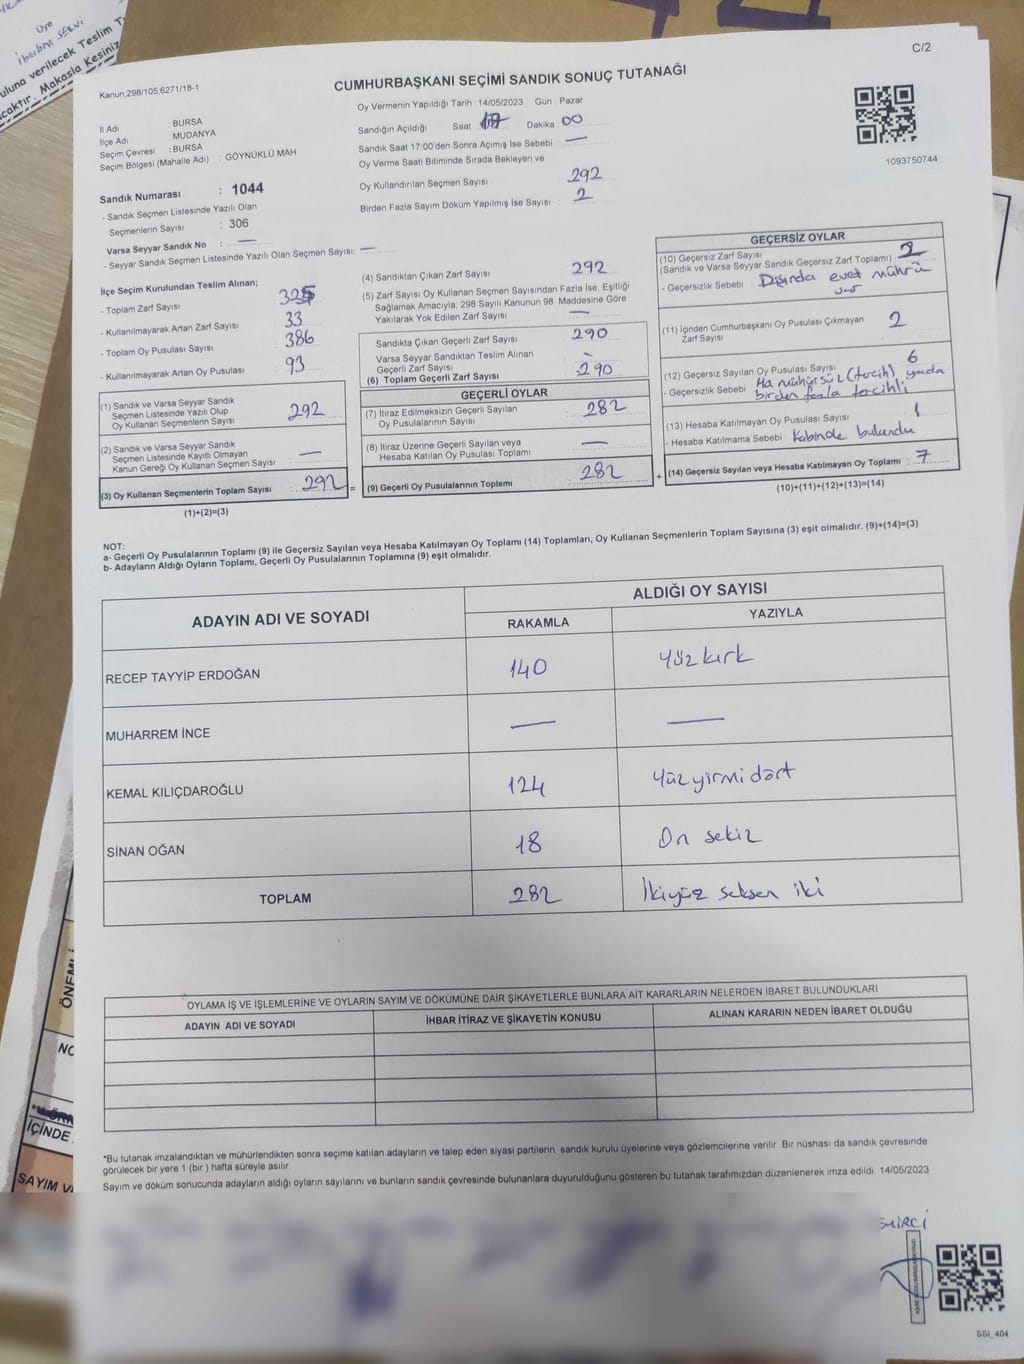 Üye
İbrahim SELVİ
uluna verilecek Teslim T
caktır. Makasla Kesiniz
C/2
Kanun:298/105,6271/18-1
CUMHURBAŞKANI SEÇİMİ SANDIK SONUÇ TUTANAĞI
1093750744
İl Adı : BURSA
İlçe Adı : MUDANYA
Seçim Çevresi : BURSA
Seçim Bölgesi (Mahalle Adı) : GÖYNÜKLÜ MAH
Sandık Numarası : 1044
- Sandık Seçmen Listesinde Yazılı Olan
Seçmenlerin Sayısı : 306
Varsa Seyyar Sandık No : —
- Seyyar Sandık Seçmen Listesinde Yazılı Olan Seçmen Sayısı : —
Oy Vermenin Yapıldığı Tarih : 14/05/2023 Gün : Pazar
Sandığın Açıldığı Saat 17 Dakika 00
Sandık Saat 17:00'den Sonra Açımış İse Sebebi : —
Oy Verme Saati Bitiminde Sırada Bekleyen ve
Oy Kullandırılan Seçmen Sayısı : 292
Birden Fazla Sayım Döküm Yapılmış İse Sayısı : 2
İlçe Seçim Kurulundan Teslim Alınan;
- Toplam Zarf Sayısı : 325
- Kullanılmayarak Artan Zarf Sayısı : 33
- Toplam Oy Pusulası Sayısı : 386
- Kullanılmayarak Artan Oy Pusulası : 93
(1) Sandık ve Varsa Seyyar Sandık
Seçmen Listesinde Yazılı Olup
Oy Kullanan Seçmenlerin Sayısı : 292
(2) Sandık ve Varsa Seyyar Sandık
Seçmen Listesinde Kayıtlı Olmayan
Kanun Gereği Oy Kullanan Seçmen Sayısı : —
(3) Oy Kullanan Seçmenlerin Toplam Sayısı : 292 =
(1)+(2)=(3)
(4) Sandıktan Çıkan Zarf Sayısı : 292
(5) Zarf Sayısı Oy Kullanan Seçmen Sayısından Fazla İse, Eşitliği
Sağlamak Amacıyla; 298 Sayılı Kanunun 98. Maddesine Göre
Yakılarak Yok Edilen Zarf Sayısı : —
Sandıkta Çıkan Geçerli Zarf Sayısı : 290
Varsa Seyyar Sandıktan Teslim Alınan
Geçerli Zarf Sayısı : -
(6) Toplam Geçerli Zarf Sayısı : 290
GEÇERLİ OYLAR
(7) İtiraz Edilmeksizin Geçerli Sayılan
Oy Pusulalarının Sayısı : 282
(8) İtiraz Üzerine Geçerli Sayılan veya
Hesaba Katılan Oy Pusulası Toplamı : —
(9) Geçerli Oy Pusulalarının Toplamı : 282 +
GEÇERSİZ OYLAR
(10) Geçersiz Zarf Sayısı
(Sandık ve Varsa Seyyar Sandık Geçersiz Zarf Toplamı) : 2
- Geçersizlik Sebebi : Dışında evet mührü
var
(11) İçinden Cumhurbaşkanı Oy Pusulası Çıkmayan
Zarf Sayısı : 2
(12) Geçersiz Sayılan Oy Pusulası Sayısı : 6
- Geçersizlik Sebebi : mühürsüz (tercih) yada
birden fazla tercihli
(13) Hesaba Katılmayan Oy Pusulası Sayısı : 1
- Hesaba Katılmama Sebebi : Kabinde bulundu
(14) Geçersiz Sayılan veya Hesaba Katılmayan Oy Toplamı : 7
(10)+(11)+(12)+(13)=(14)
NOT:
a- Geçerli Oy Pusulalarının Toplamı (9) ile Geçersiz Sayılan veya Hesaba Katılmayan Oy Toplamı (14) Toplamları, Oy Kullanan Seçmenlerin Toplam Sayısına (3) eşit olmalıdır. (9)+(14)=(3)
b- Adayların Aldığı Oyların Toplamı, Geçerli Oy Pusulalarının Toplamına (9) eşit olmalıdır.
ADAYIN ADI VE SOYADI
ALDIĞI OY SAYISI
RAKAMLA YAZIYLA
RECEP TAYYİP ERDOĞAN 140 Yüz kırk
MUHARREM İNCE — —
KEMAL KILIÇDAROĞLU 124 Yüz yirmi dört
SİNAN OĞAN 18 On sekiz
TOPLAM 282 İkiyüz seksen iki
OYLAMA İŞ VE İŞLEMLERİNE VE OYLARIN SAYIM VE DÖKÜMÜNE DAİR ŞİKAYETLERLE BUNLARA AİT KARARLARIN NELERDEN İBARET BULUNDUKLARI
ADAYIN ADI VE SOYADI İHBAR İTİRAZ VE ŞİKAYETİN KONUSU ALINAN KARARIN NEDEN İBARET OLDUĞU
*Bu tutanak imzalandıktan ve mühürlendikten sonra seçime katılan adayların ve talep eden siyasi partilerin sandık kurulu üyelerine veya gözlemcilerine verilir. Bir nüshası da sandık çevresinde
görülecek bir yere 1 (bir ) hafta süreyle asılır.
Sayım ve döküm sonucunda adayların aldığı oyların sayılarını ve bunların sandık çevresinde bulunanlara duyurulduğunu gösteren bu tutanak tarafımızdan düzenlenerek imza edildi. 14/05/2023
ÖNEMLİ
NO
İÇİNDE
SAYIM V
EMİRCİ
SSI_404